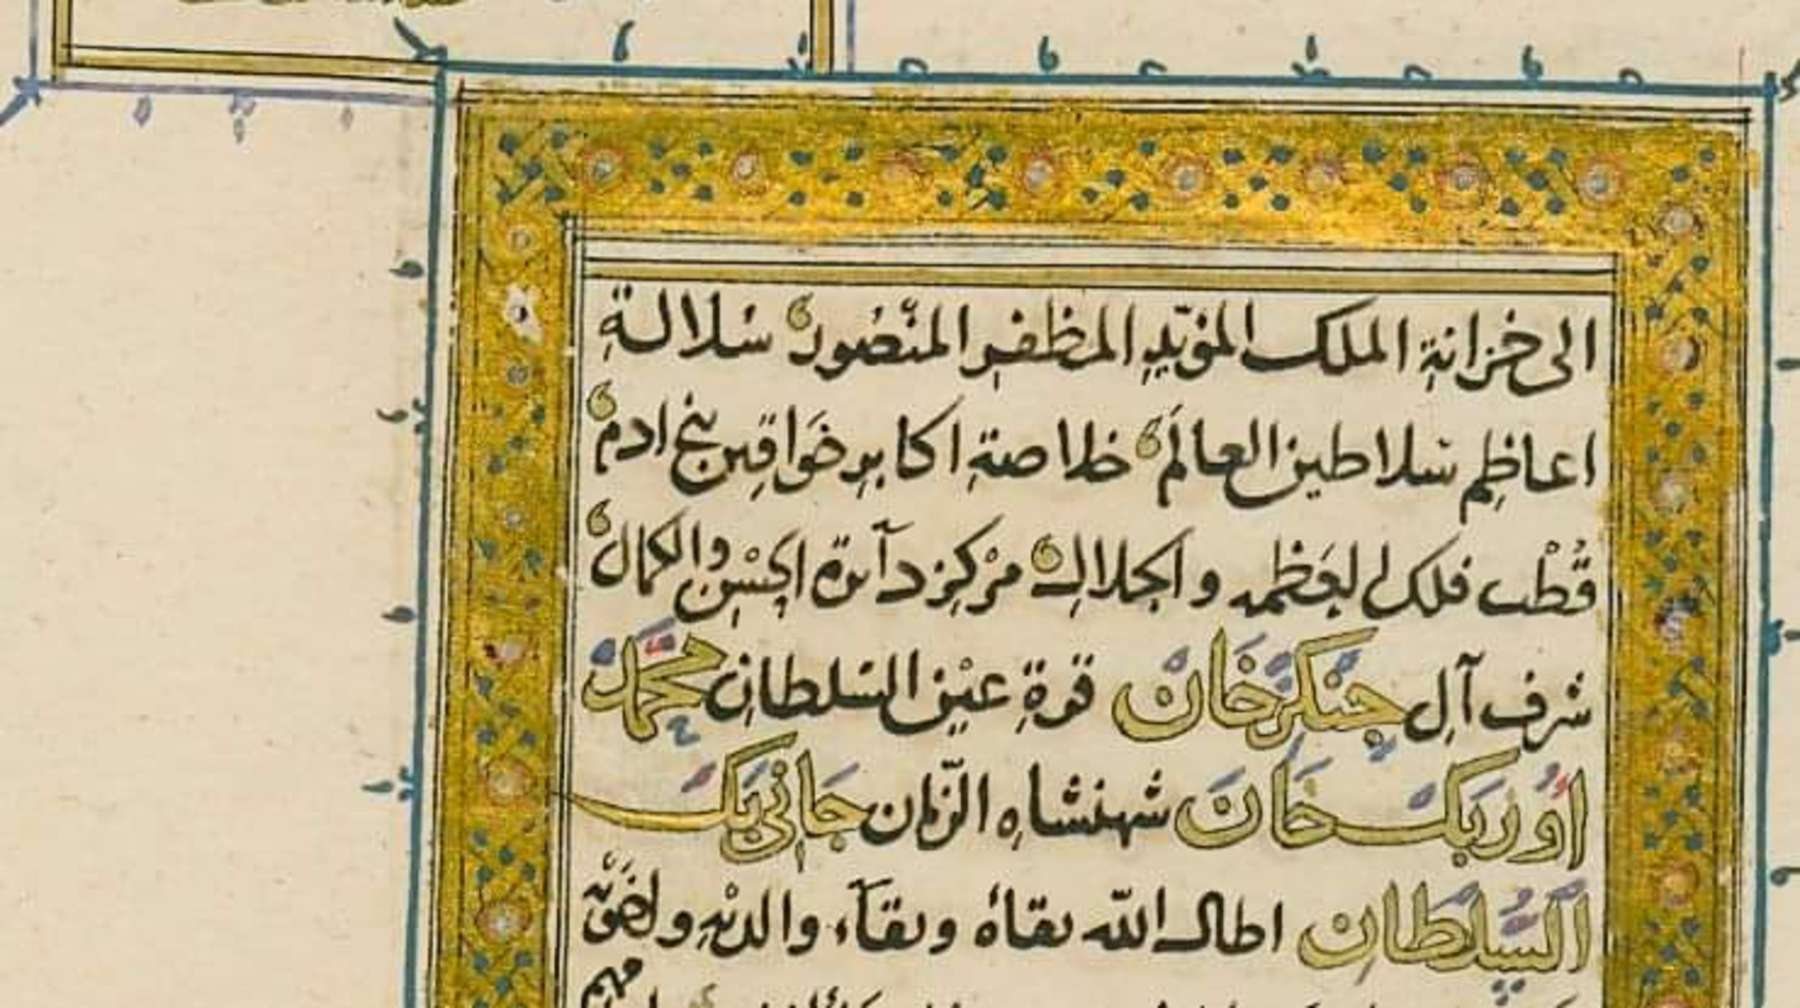 الى خزانة الملك المؤيّدِ المظفر المنْصُور سُلالةِ
اعاظِمِ سَلاطين العالَم خلاصة اكابرِ خَواقين بني ادم
قُطْب فلك العَظمه والجلال مرْكز دآئرة الحُسْن والكمال
شرف آلِ جنكزخَان قرة عيْن السّلطان محَمّد
اوُزبَك خَان شهنشاه الزّمان جَاني بَك
السُّلطان اطال الله بقاهُ وبقآء والديْهِ واخوَته